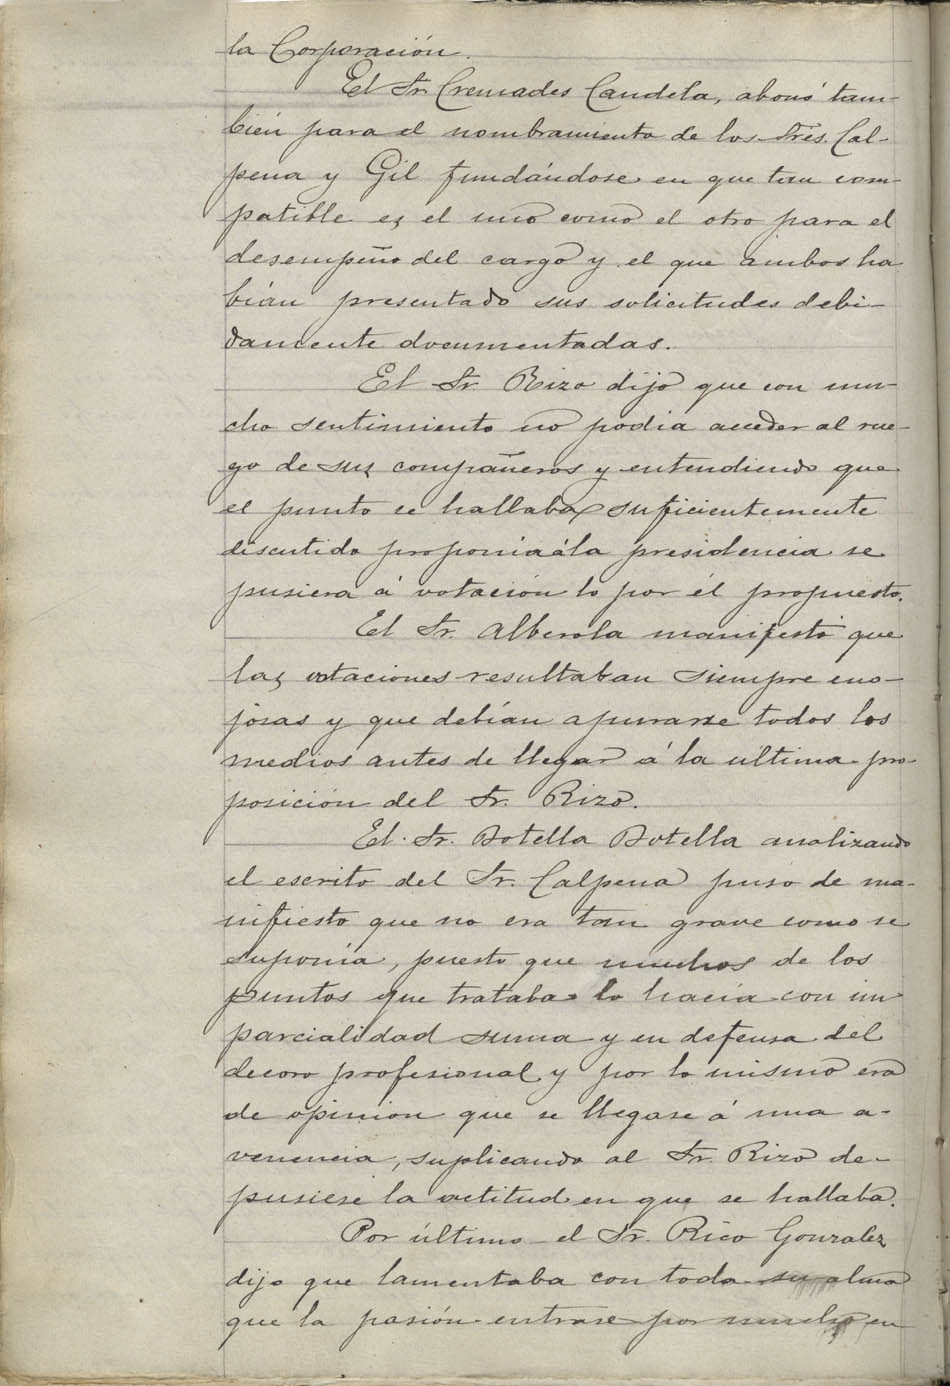 la Corporación.
El Sr. Cremades Candela, abonó tam-
bién para el nombramiento de los Sres. Cal-
pena y Gil fundándose en que tan com-
patible es el uno como el otro para el
desempeño del cargo y el que ambos ha
bían presentado sus solicitudes debi-
damente documentadas.
El Sr. Rizo dijo que con mu-
cho sentimiento no podia acceder al rue-
go de sus compañeros y entendiendo que
el punto se hallaba suficientemente
discutido proponia á la presidencia se
pusiera á votación lo por él propuesto.
El Sr. Alberola manifestó que
las votaciones resultaban siempre eno-
josas y que debían apurarse todos los
medios antes de llegar á la ultima pro-
posición del Sr. Rizo.
El Sr. Botella Botella analizando
el escrito del Sr. Calpena puso de ma-
nifiesto que no era tan grave como se
suponía, puesto que muchos de los
puntos que trataba lo hacía con im
parcialidad suma y en defensa del
decoro profesional y por lo mismo era
de opinion que se llegase á una a-
venencia, suplicando al Sr. Rizo de-
pusiese la actitud en que se hallaba.
Por último el Sr. Rico Gonzalez
dijo que lamentaba con toda su alma
que la pasión entrase por mucho en